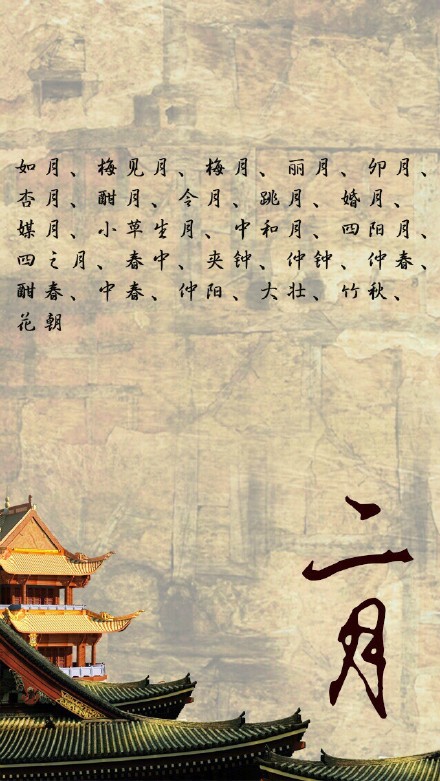 如月、梅见月、梅月、丽月、卯月、
杏月、酣月、令月、跳月、婚月、
媒月、小草生月、中和月、四阳月、
四之月、春中、夹钟、仲钟、仲春、
酣春、中春、仲阳、大壮、竹秋、
花朝
二月